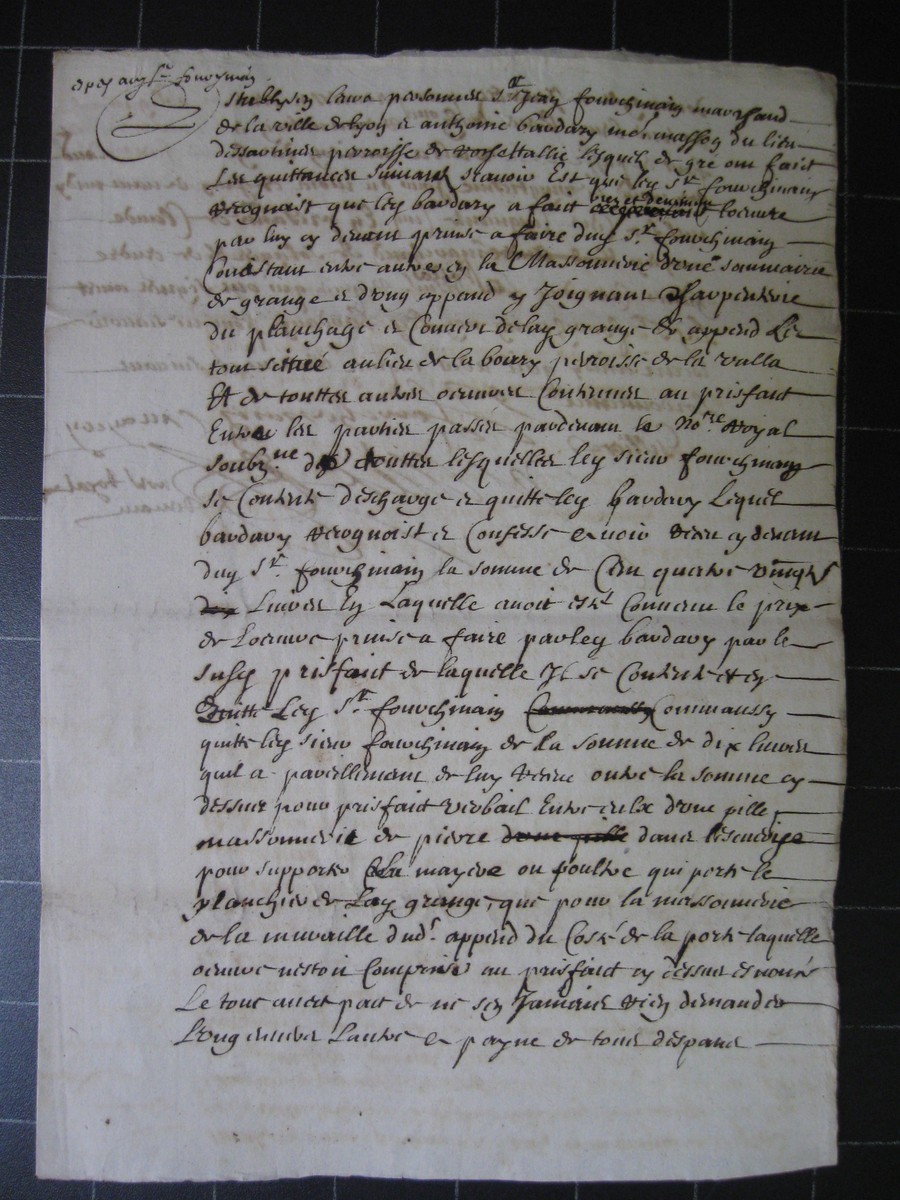 Establys en leurs personnes sr Jean fourchimain marchand
de la ville de lyon et anthoine bardary me masson du lieu
parroisse de lesquels de gré ont faict
Les quittances suivant scavoir Est que ley sr fourchimain
recognoist que ley bardary a faict loeuvre
par luy cy devant prinse a faire duy sr fourchimain
Consistant entre autres en la Massonnerie d'une
de grange et d'ung appand y Joignant Charpenterie
du planchage et Couvert de lay grange et append Le
tout scittué au lieu de la boury parroisse de la valla
Et de touttes autres oeuvres Contenues au prisfaict
Entre les parties passés pardevant le nore Royal
soubzne de touttes lesquelles ley sieur fourchimain
se Contente descharge et quitte ley bardary Lequel
bardary recognoist et Confesse avoir receu cy devant
duy sr fourchimain la somme de Cent quatre vingts
Livres En Laquelle avoit esté Convenu le prix
de Loeuvre prinse a faire par ley bardary par le
susy prisfaict de laquelle Il se Contente et en
Quitte Ley sr fourchimain Commaussy
quitte ley sieur fourchimain de la somme de dix livres
quil a pareillement de luy receue outre la somme cy
dessus pour prisfaict verbail Entre eulx d'une pille
massonnerie de pierre d'une pille dans lescurye
pour supporter la mayere ou poultre qui porte le
planchier de Lay grange, que pour la massonnerie
de la muraille dudt append du Costé de la porte laquelle
oeuvre nestoit Comprinse au prisfaict cy dessus esnoncé
Le tout avec pact de ne sen Jamais rien demander
L'ung envers Lautre a payne de tous despans